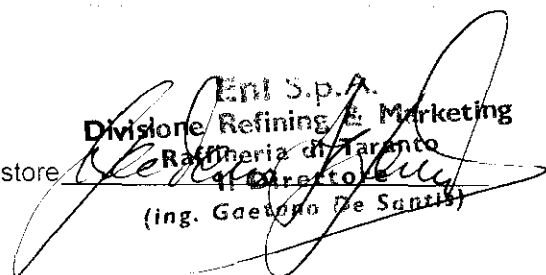 Eni S.p.A.
Divisione Refining & Marketing
Raffineria di Taranto
store Il Direttore
(ing. Gaetano De Santis)